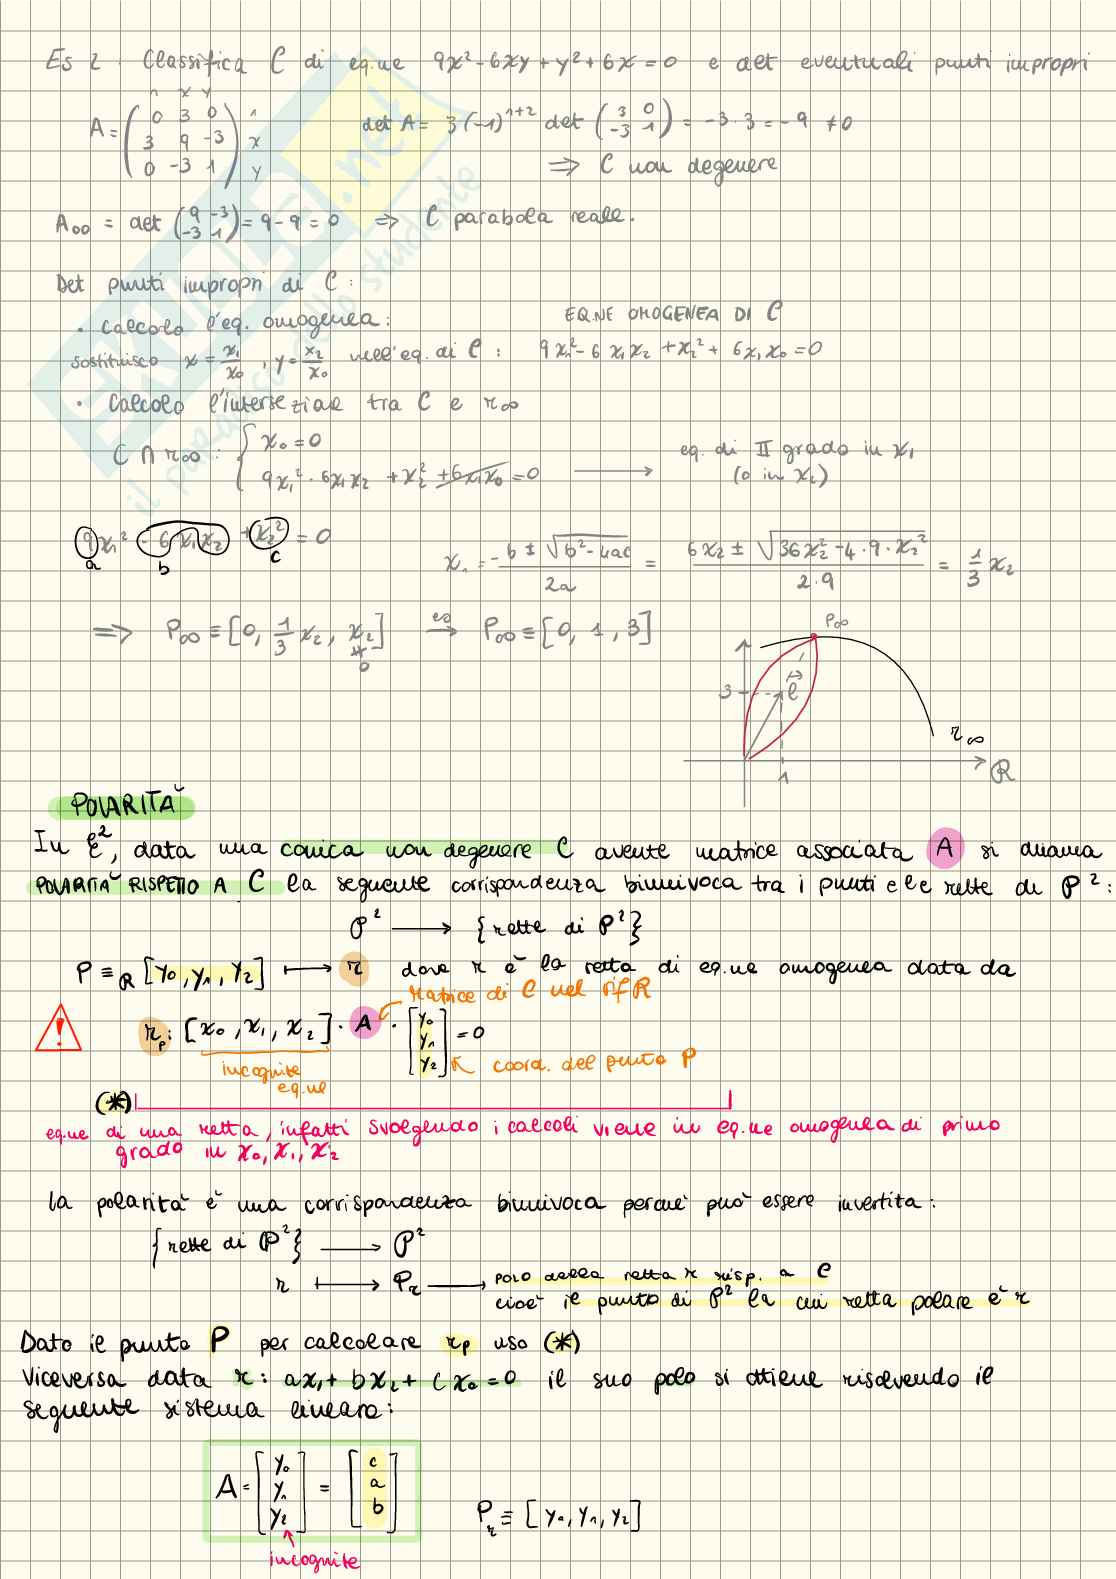 Es 2. Classifica C di eq.ne 9x² - 6xy + y² + 6x = 0 e det eventuali punti impropri
1 x y
A = ( 0 3 0 ) 1
( 3 9 -3 ) x
( 0 -3 1 ) y
det A = 3(-1)¹⁺² det ( 3 0 ; -3 1 ) = -3·3 = -9 ≠0
⟹ C non degenere
A₀₀ = det ( 9 -3 ; -3 1 ) = 9-9 = 0 ⟹ C parabola reale.
Det punti impropri di C:
• Calcolo l'eq. omogenea:
EQ.NE OMOGENEA DI C
sostituisco x = x₁/x₀ , y = x₂/x₀ nell'eq. di C : 9x₁² - 6x₁x₂ + x₂² + 6x₁x₀ = 0
• Calcolo l'intersezione tra C e r∞
C ∩ r∞ : { x₀ = 0
9x₁² · 6x₁x₂ + x₂² + 6x₁x₀ = 0 ⟶ eq. di II grado in x₁
(o in x₂)
9x₁² - 6x₁x₂ + x₂² = 0
a b c
x₁ = -b ± √(b²-4ac) / 2a = 6x₂ ± √(36x₂² - 4·9·x₂²) / 2·9 = 1/3 x₂
⟹ P∞ ≡ [0, 1/3 x₂, x₂] es⟶ P∞ ≡ [0, 1, 3]
≠
0
P∞
3
l
r∞
1
R
POLARITÀ
In E², data una conica non degenere C avente matrice associata A si chiama
POLARITÀ RISPETTO A C la seguente corrispondenza biunivoca tra i punti e le rette di P²:
P² ⟶ {rette di P²}
P ≡R [y₀, y₁, y₂] ⟼ r dove r è la retta di eq.ne omogenea data da
matrice di C nel rif R
rp : [x₀, x₁, x₂] · A · [y₀ y₁ y₂] = 0
incognite
eq.ne
coord. del punto P
(*)
eq.ne di una retta, infatti svolgendo i calcoli viene un eq.ne omogenea di primo
grado in x₀, x₁, x₂
La polarità è una corrispondenza biunivoca perché può essere invertita:
{rette di P²} ⟶ P²
r ⟼ Pr ⟶ POLO della retta r risp. a C
cioè il punto di P² la cui retta polare è r
Dato il punto P per calcolare rp uso (*)
Viceversa data r: ax₁ + bx₂ + cx₀ = 0 il suo polo si ottiene risolvendo il
seguente sistema lineare:
A · [y₀ y₁ y₂] = [c a b]
Pr ≡ [y₀, y₁, y₂]
incognite
SKUOLA.net
il paradiso dello studente